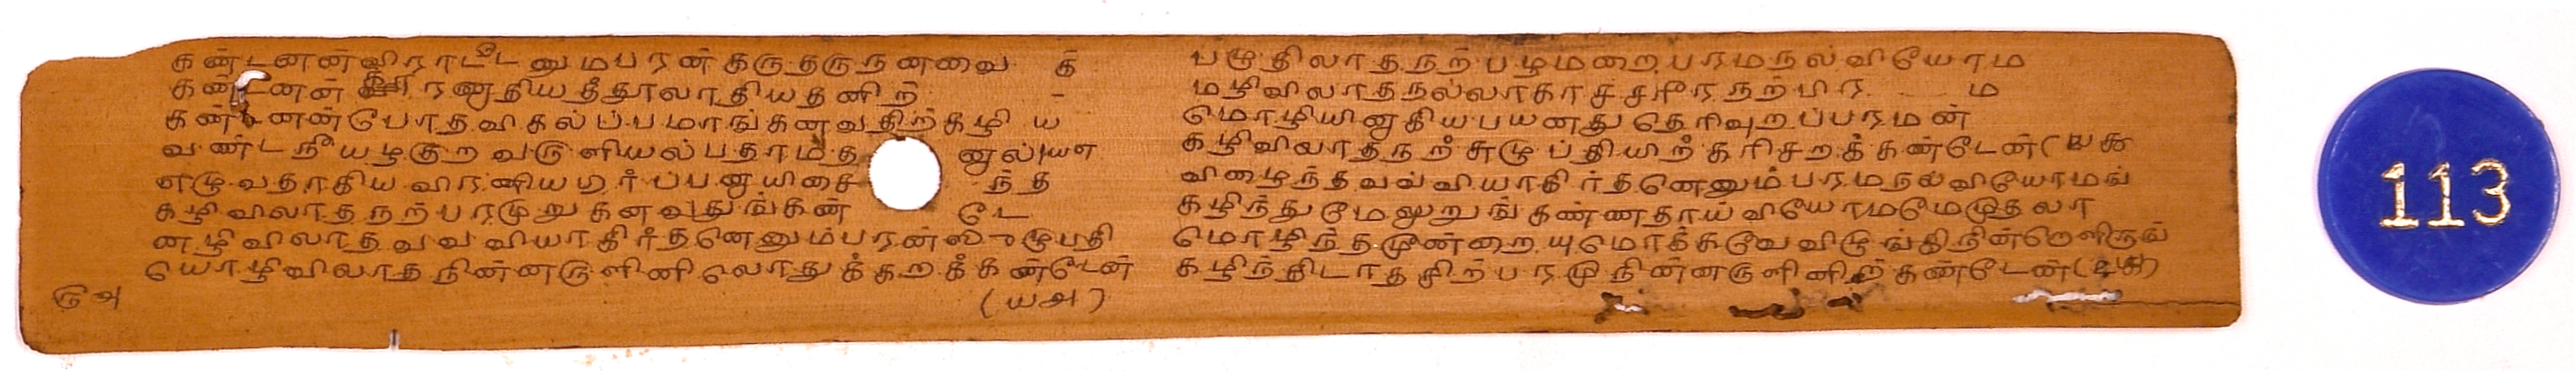 கண்டனன்விராட்டனுமபரன்தருதருநனவை க்
கண்டனன் ரணுதியதீதூலாதியதனிற்
கண்டனண்போதவிகல்ப்பமாங்கனவதிற்கழி ய
வண்டநீயழகுறவருளியல்பதாம்த னுல்
எடுவதாகிய ந்த
கழிவிலாதநற்பரமுறுகனவுதுங்கண் டே
னழிவிலாதவவ்வியாகிர்தனெனும்பரன்
யொழிவிலாதநின்னருளினிலொதுக்கறக்கண்டேன்
ருஅ (யஅ)
பழுதிலாதநற்பழமறைபரமநல்வியோம
மழிவிலாதநல்லாகாச ம
மொழியினுகியபயனதுதெரிவுறப்பரமன்
கழிவிலாதநற்சுழுப்தியிற்கரிசறக்கண்டேன்(
விழைந்தவவ்வியாகிர்தனெனும்பரமநல்வியோமங்
கழிந்துமேலுறுங்கண்ணதாய்வியோமமேமுதலா
மொழிந்தமுன்றையுமொக்கவேவிழுங்கிநின்றொளிருங்
கழிந்திடாதசிற்பரமுநின்னருளினிற்கண்டேன்(
113